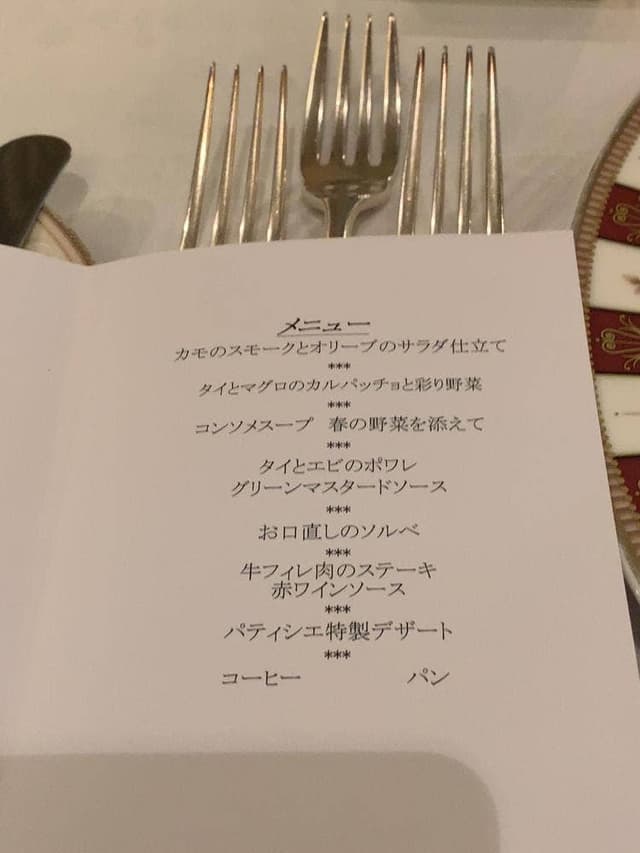 メニュー
カモのスモークとオリーブのサラダ仕立て
***
タイとマグロのカルパッチョと彩り野菜
***
コンソメスープ　春の野菜を添えて
***
タイとエビのポワレ
グリーンマスタードソース
***
お口直しのソルベ
***
牛フィレ肉のステーキ
赤ワインソース
***
パティシエ特製デザート
***
コーヒー　　　　　パン